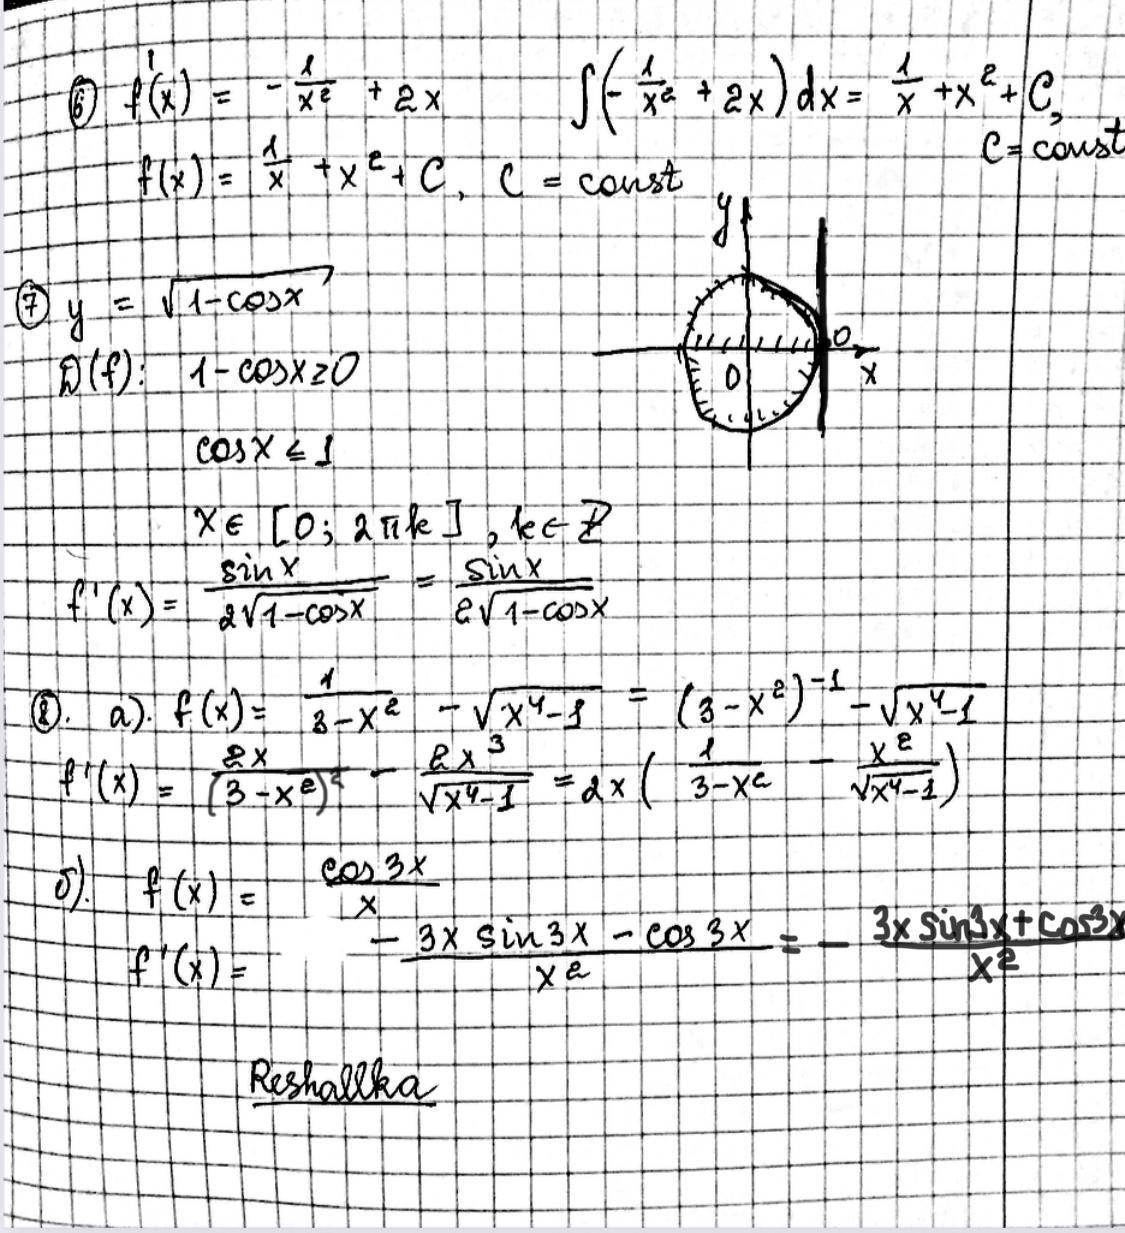 ⑥ f'(x) = -1/x² + 2x ∫(-1/x² + 2x)dx = 1/x + x² + C,
C = const
f(x) = 1/x + x² + C, C = const
y
⑦ y = √(1-cosx)
0
D(f): 1-cosx≥0
0 x
cosx ≤ 1
x ∈ [0; 2πk], k∈Z
f'(x) = sinx/(2√(1-cosx)) = sinx/(2√(1-cosx))
⑧. а). f(x) = 1/(3-x²) - √(x⁴-1) = (3-x²)⁻¹ - √(x⁴-1)
f'(x) = 2x/(3-x²)² - 2x³/√(x⁴-1) = 2x(1/(3-x²) - x²/√(x⁴-1))
б). f(x) = cos3x/x
f'(x) = (-3x sin3x - cos3x)/x² = - (3x sin3x + cos3x)/x²
Reshallka